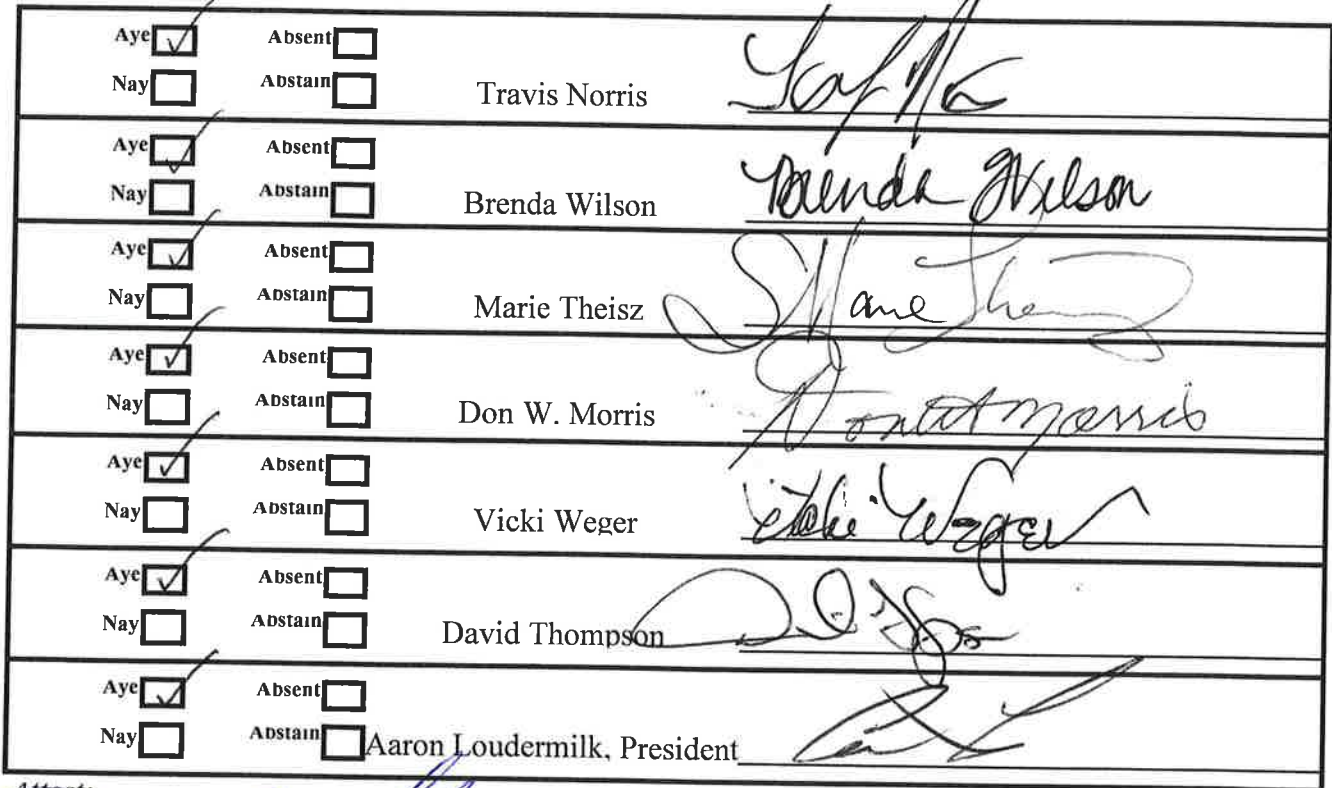 Aye Absent
Nay Abstain Travis Norris
Aye Absent
Nay Abstain Brenda Wilson Brenda Wilson
Aye Absent
Nay Abstain Marie Theisz
Aye Absent
Nay Abstain Don W. Morris Morris
Aye Absent
Nay Abstain Vicki Weger Weger
Aye Absent
Nay Abstain David Thompson
Aye Absent
Nay Abstain Aaron Loudermilk, President